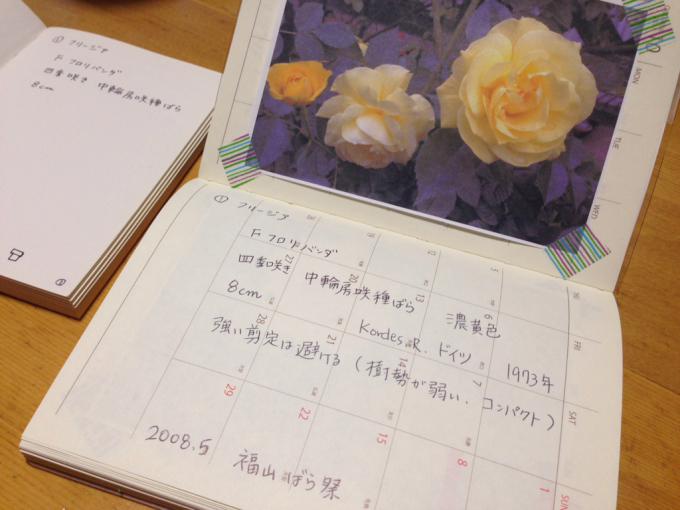 ① フリージア
F フロリバンダ
四季咲き 中輪房咲種ばら
8cm
①
MON
TUE
WED
① フリージア
F フロリバンダ
四季咲き 中輪房咲種ばら 濃黄色
8cm Kordes R. ドイツ 1973年
強い剪定は避ける (樹勢が弱い. コンパクト)
2008.5 福山ばら祭
FRI
19 12 5
SAT
27 20 13 6
28 21 14 7
SUN
29 22 15 8 1